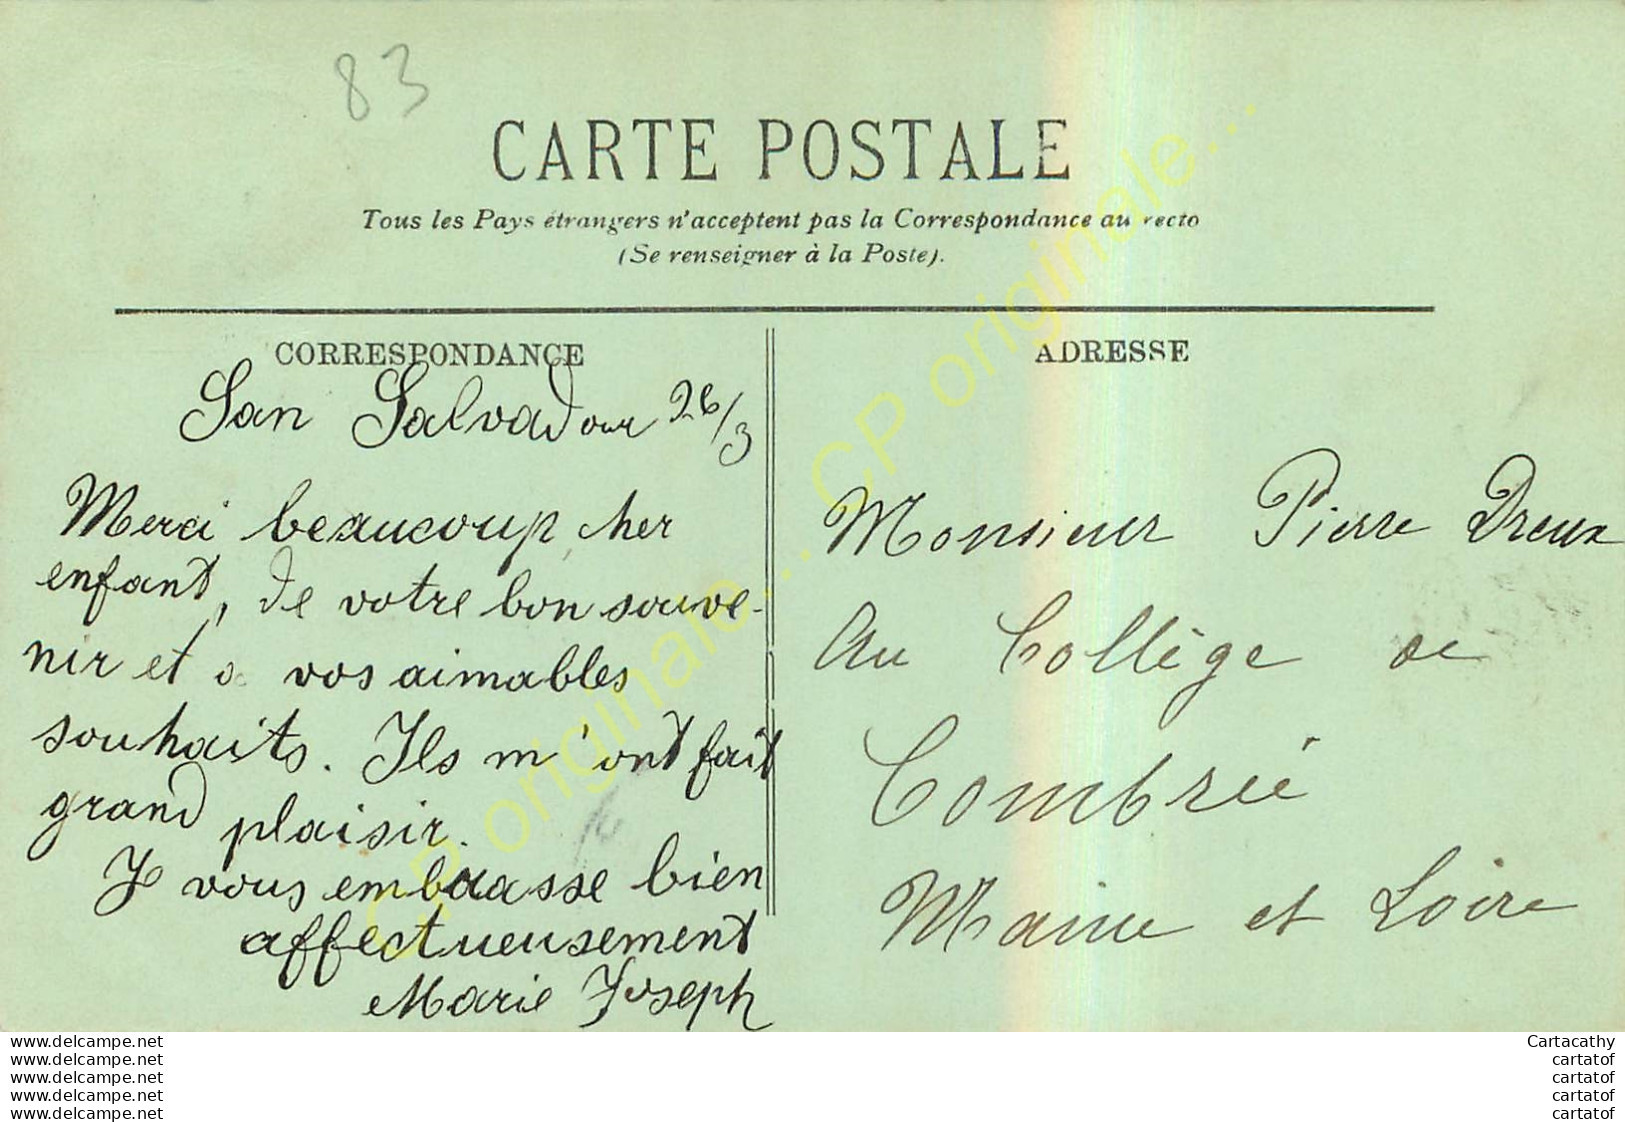 83
CARTE POSTALE
Tous les Pays étrangers n'acceptent pas la Correspondance au recto
(Se renseigner à la Poste).
CORRESPONDANCE
San Salvadour 26/3
Merci beaucoup, cher
enfant, de votre bon souve-
nir et de vos aimables
souhaits. Ils m'ont fait
grand plaisir.
Je vous embrasse bien
affectueusement
Marie Joseph
ADRESSE
Monsieur Pierre Dreux
Au Collège de
Combrée
Maine et Loire
CP originale... CP originale...
www.delcampe.net
www.delcampe.net
www.delcampe.net
www.delcampe.net
www.delcampe.net
Cartacathy
cartatof
cartatof
cartatof
cartatof